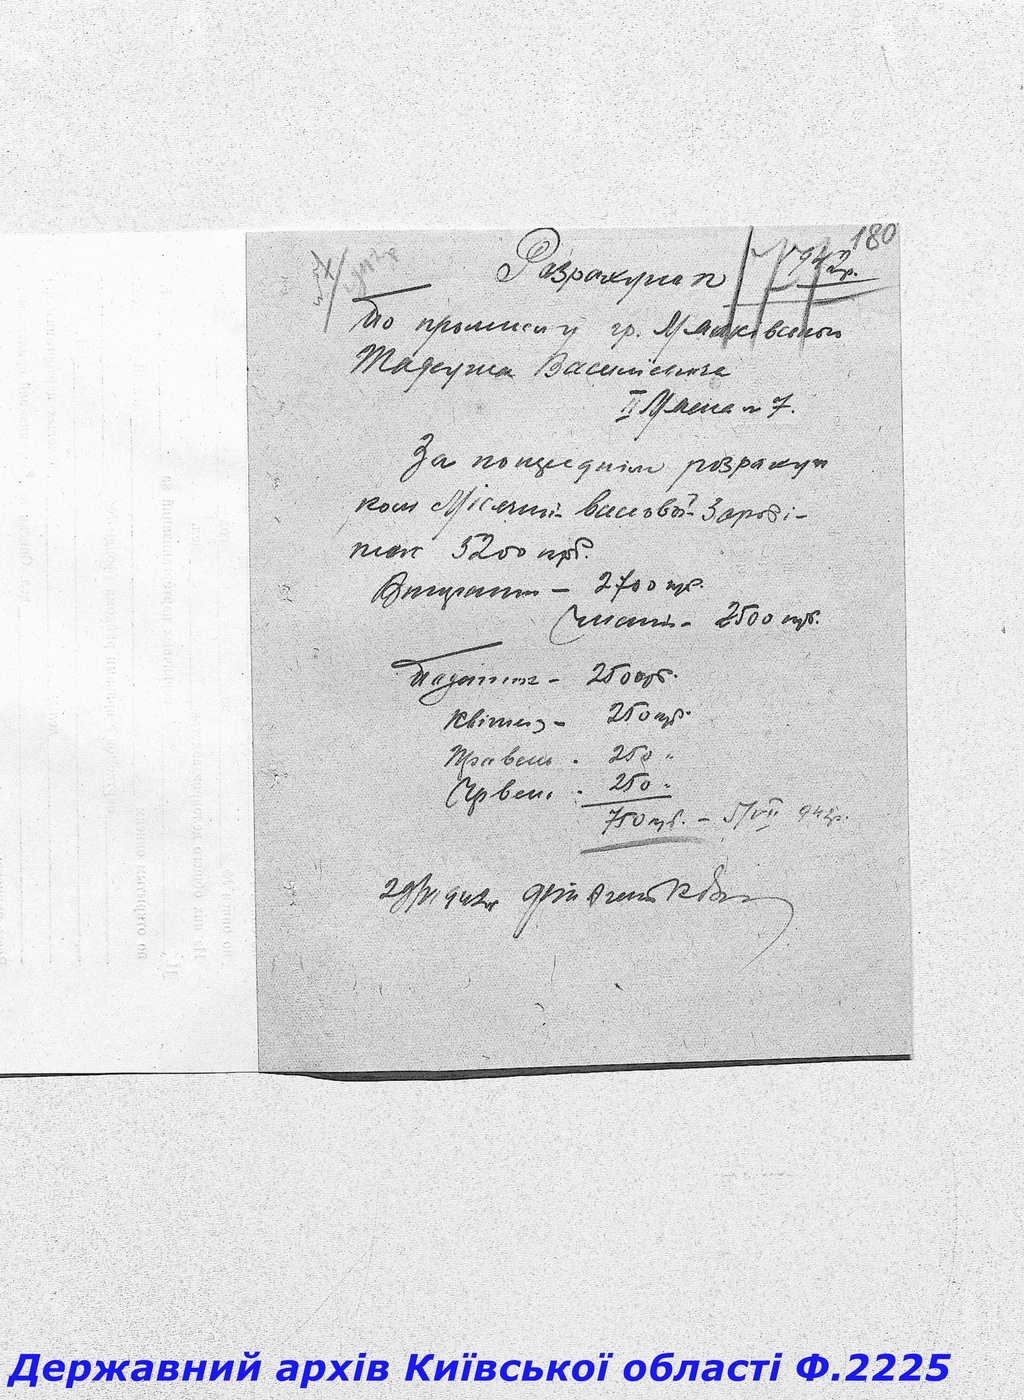 180
Розрахунок
По промислу гр. Маньковського
Тадеуша Васильевича
II Масна № 7.
За попереднім розрахун
ком Місячний валовой Заробі-
ток 5200 крб.
Витрати – 2700 крб.
Чистий – 2500 крб.
Податок – 250 крб.
Квітень – 250 крб.
Травень . 250 "
Червень . 250 "
750 крб. – 5/VII 942р.
29/VI 942р Фін Агент
Державний архів Київської області Ф.2225